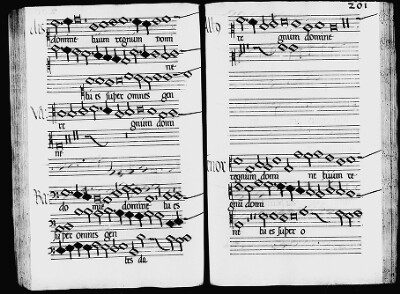 domine tuum regnum domi
ne
tu es super omnes gen
Va:
re gnum domi
ne
Ba
do mine domine tu es
super omnes gen
tes da
201
Alto
re gnum domine
regnum domi ne tuum re
gnum domi
ne tu es super o